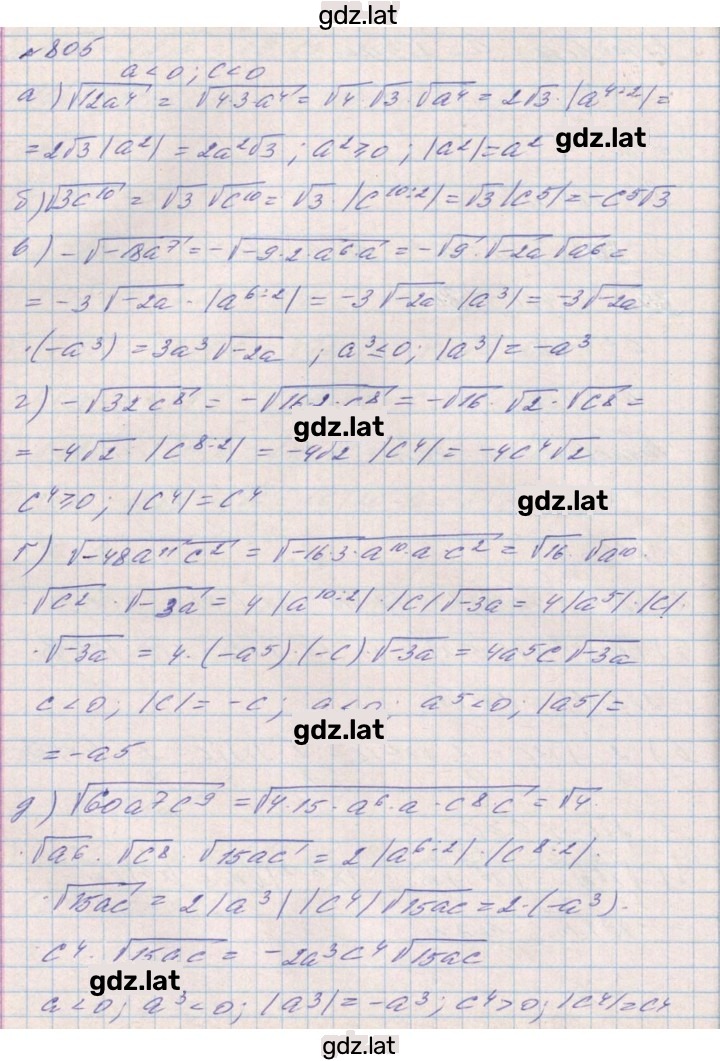 gdz.lat
№ 805
a<0; c<0
а) √12a⁴ = √4·3·a⁴ = √4·√3·√a⁴ = 2√3·|a^4:2| =
gdz.lat
= 2√3|a²| = 2a²√3; a²≥0; |a²|=a²
б) √3c¹⁰ = √3·√c¹⁰ = √3·|c^10:2| = √3|c⁵| = -c⁵√3
в) -√-18a⁷ = -√-9·2·a⁶·a = -√9·√-2a √a⁶ =
= -3√-2a·|a^6:2| = -3√-2a |a³| = -3√-2a
·(-a³) = 3a³√-2a; a³≤0; |a³| = -a³
г) -√32c⁸ = -√16·2·c⁸ = -√16·√2·√c⁸ =
gdz.lat
= -4√2·|c^8:2| = -4√2 |c⁴| = -4c⁴√2
c⁴≥0; |c⁴| = c⁴
gdz.lat
г) √-48a¹¹c² = √-16·3·a¹⁰·a·c² = √16·√a¹⁰·
·√c²·√-3a = 4|a^10:2|·|c|√-3a = 4|a⁵|·|c|·
·√-3a = 4·(-a⁵)·(-c)·√-3a = 4a⁵c√-3a
c<0; |c| = -c; a<0; a⁵<0; |a⁵| =
gdz.lat
= -a⁵
д) √60a⁷c⁹ = √4·15·a⁶·a·c⁸·c = √4·
·√a⁶·√c⁸·√15ac = 2|a^6:2|·|c^8:2|·
·√15ac = 2|a³||c⁴|√15ac = 2·(-a³)·
·c⁴·√15ac = -2a³c⁴√15ac
gdz.lat
a<0; a³<0; |a³| = -a³; c⁴>0; |c⁴|=c⁴
gdz.lat